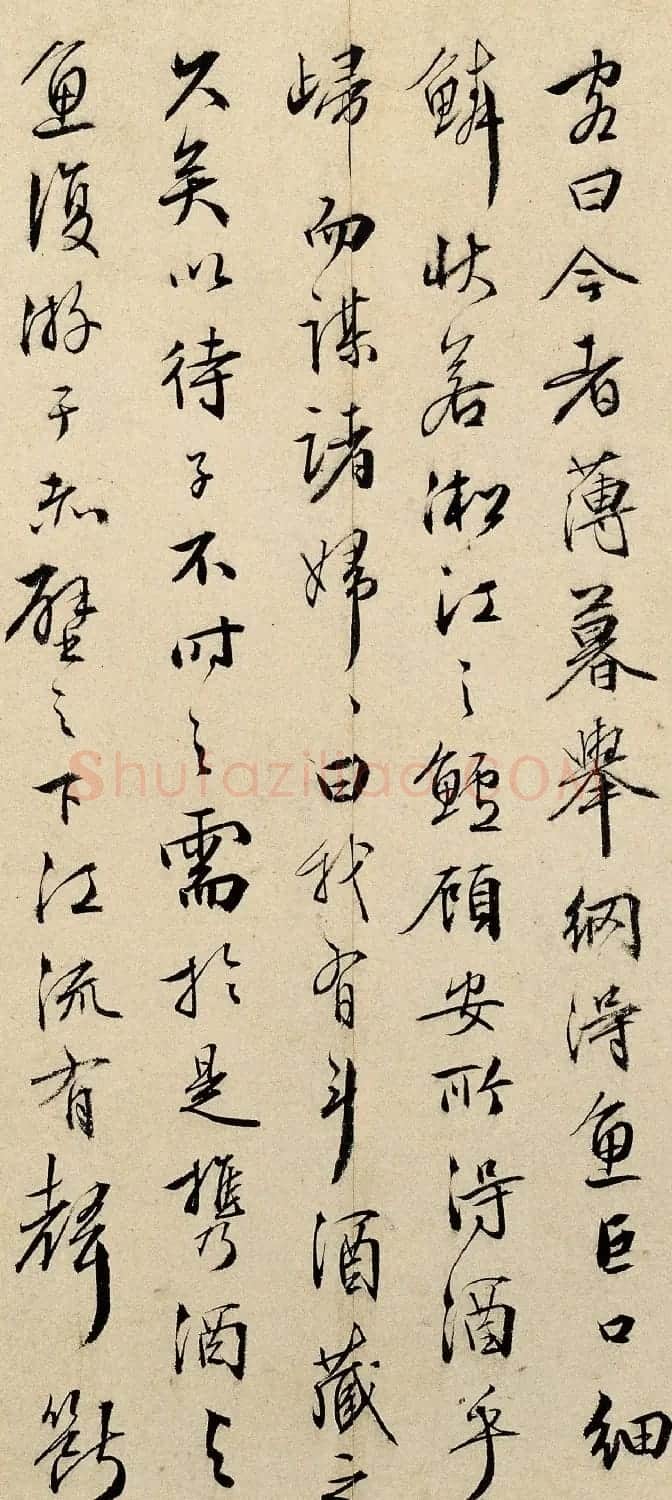 客曰今者薄暮舉網得魚巨口細
鱗狀若淞江之鱸顧安所得酒乎
歸而謀諸婦、曰我有斗酒藏之
久矣以待子不時之需於是攜酒與
魚復游于赤壁之下江流有聲斷
Shufaziliao.COM